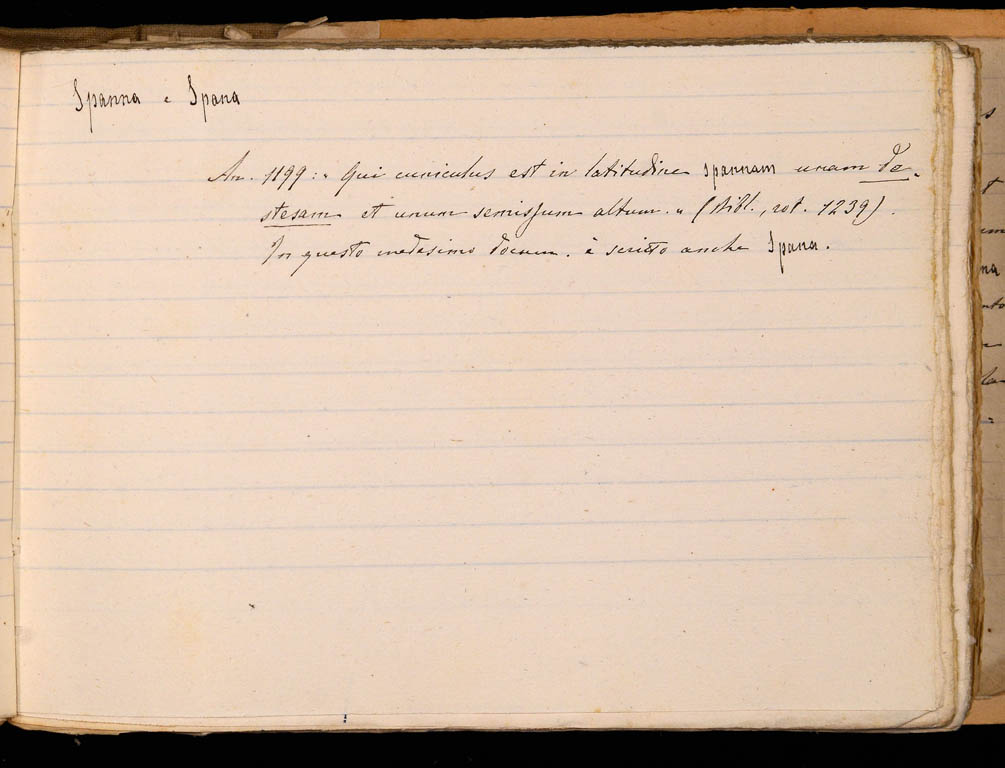 Spanna e Spana
An. 1199: « Qui cuniculus est in latitudine spannam unam de-
stesam et unum semissum altum. » (Bibl., rot. 1239).
In questo medesimo docum. è scritto anche Spana.